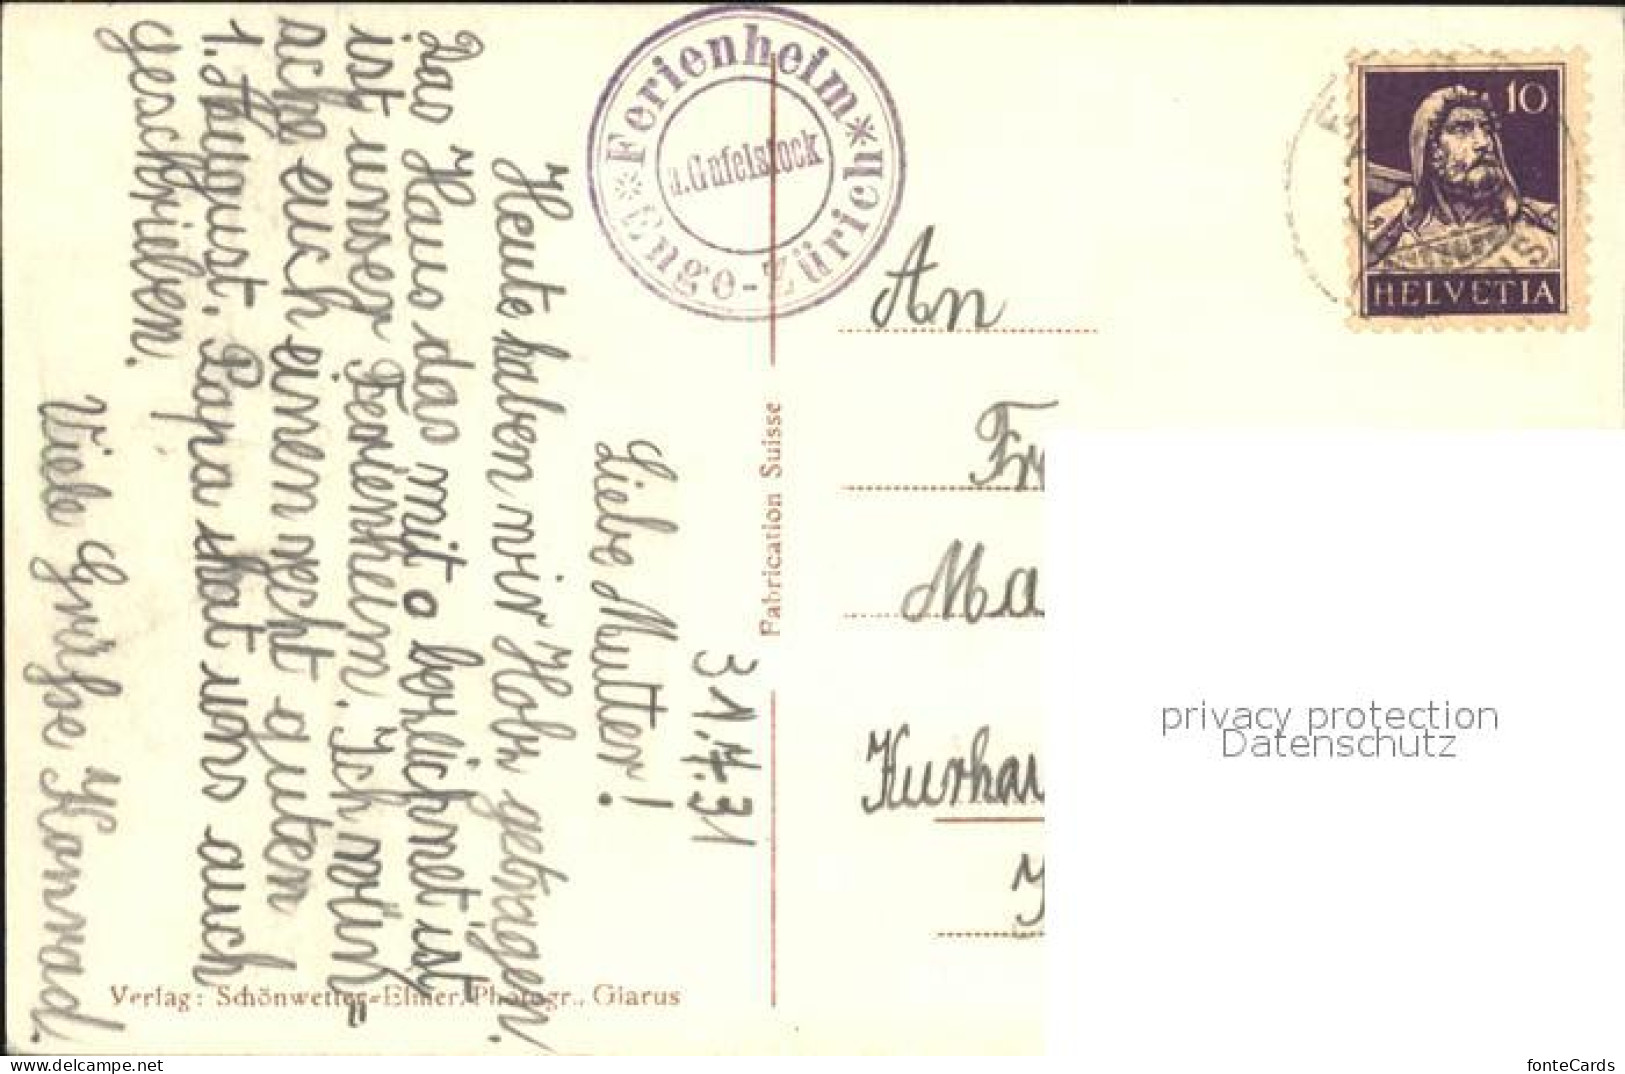 31.7.31
Liebe Mutter!
Heute haben wir Holz getragen.
Das Haus das mit o bezeichnet ist
ist unser Ferienheim. Ich wün=
sche euch einen recht guten
1. August. Papa hat uns auch
geschrieben.
Viele Grüsse Konrad.
Verlag: Schönwetter-Elmer, Photogr., Glarus
Fabrication Suisse
* Ferienheim *
Enge-Zürich
a. Gufelstock
10
HELVETIA
An
Fr
Ma
Kurhau
privacy protection
Datenschutz
www.delcampe.net
fonteCards